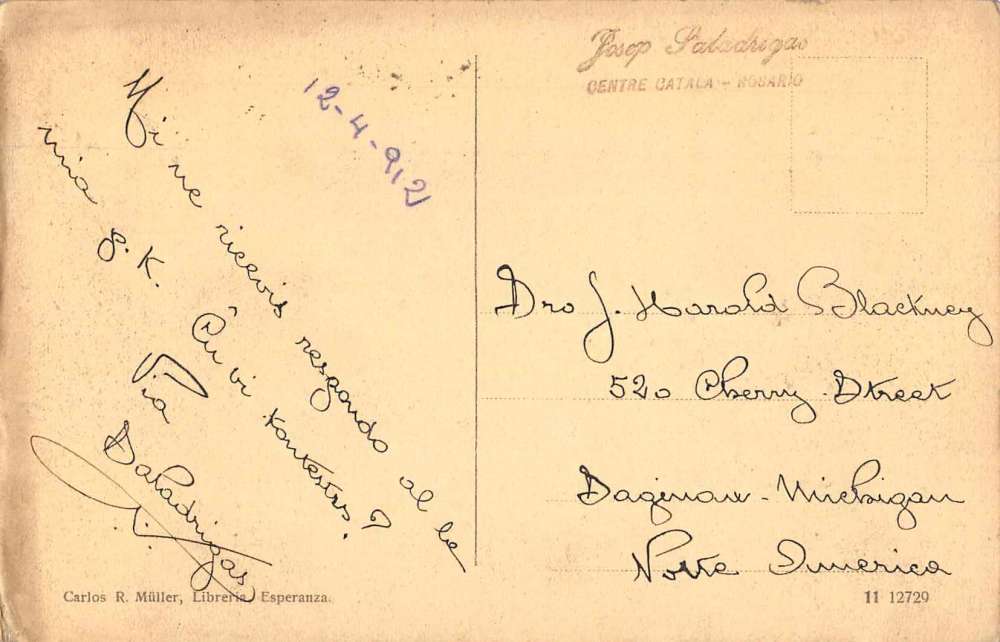 12-4-912
Mi ne ricevis respondo al la
mia p. K. Ĉu vi kontestos?
Via
Saladrigas
Josep Saladrigas
CENTRE CATALA - ROSARIO
Dro J. Harold Blackney
520 Cherry Street
Saginaw - Michigan
Norte America
Carlos R. Müller, Librería Esperanza.
11 12729